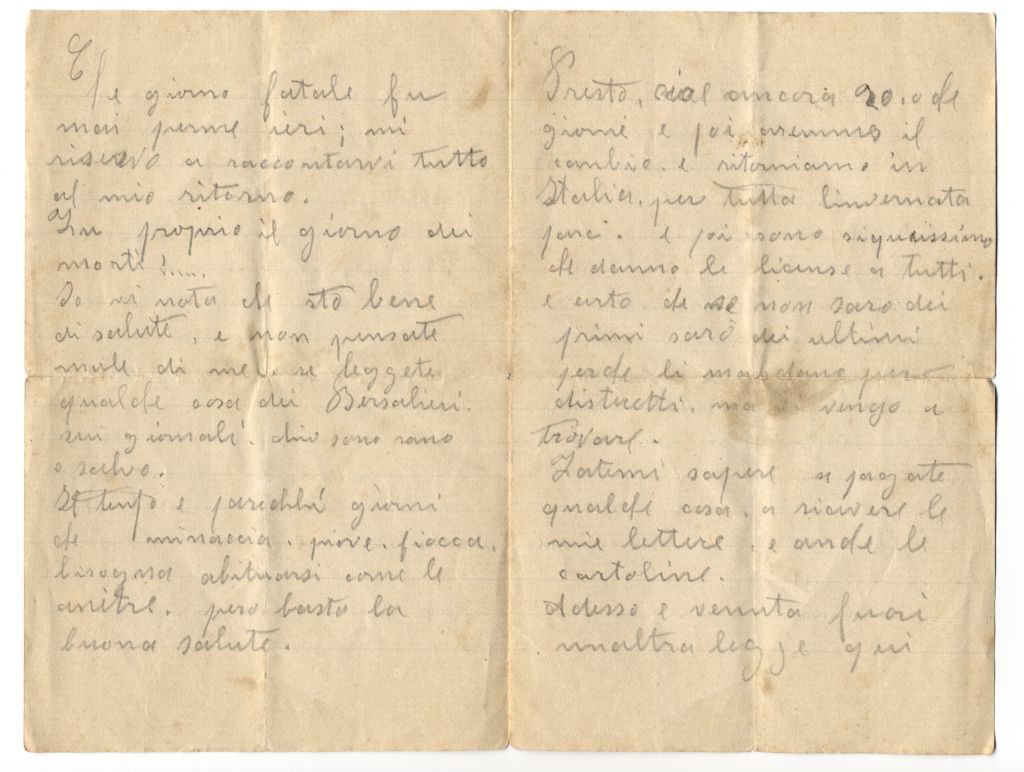 Che giorno fatale fu
mai perme ieri; mi
riservo a raccontarvi tutto
al mio ritorno.
Fu proprio il giorno dei
morti!.....
Io vi nota che sto bene
di salute, e non pensate
male di me. se leggete
qualche cosa dei Bersalieri.
sui giornali. sono sano
e salvo.
Il tenpo e parechhi giorni
che minaccia. piove. fiocca.
bisogna abituarsi come le
anitre. pero basta la
buona salute.
Presto, cioe ancora 20. o de
giorni e poi aremmo il
cambio. e ritorniamo in
Italia. per tutta linvernata
. e poi sono siqurissimo
che danno le license a tutti.
e certo che se non saro dei
primi saró dei ultimi
perche li mandano
distretti. ma vi vengo a
trovare.
Fatemi sapere se pagate
qualche cosa. a ricevere le
mie lettere. e anche le
cartoline.
Adesso e venuta fuori
unaltra legge qui